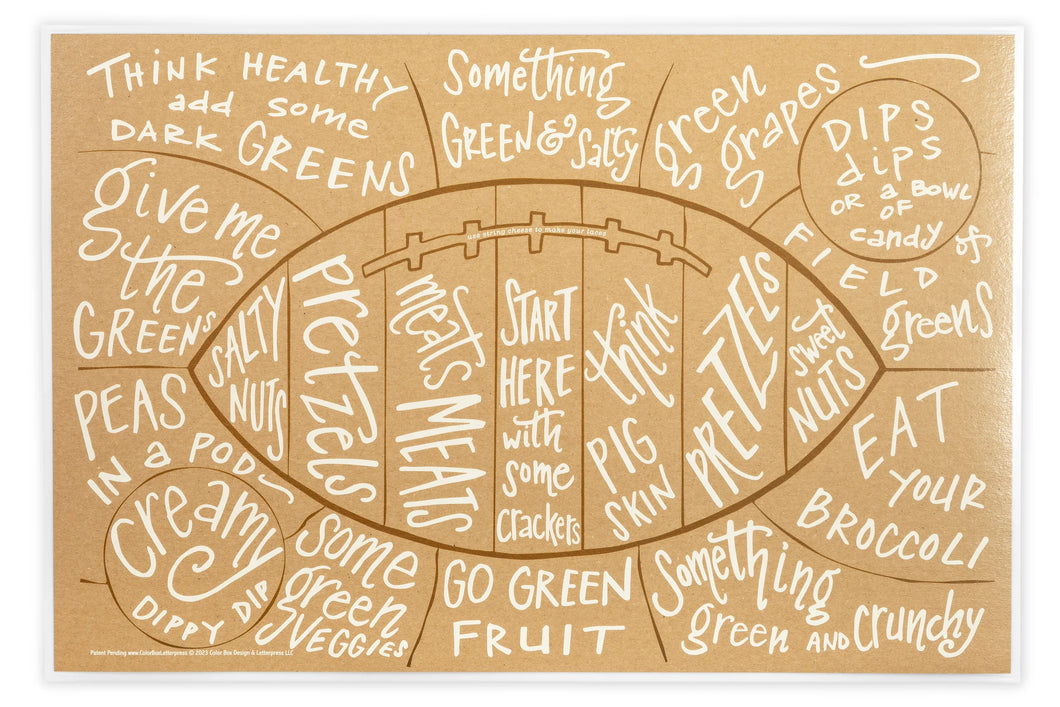 THINK HEALTHY
add some
DARK GREENS
Something
GREEN & Salty
green
grapes
DIPS
dips
OR a BOWL
OF
candy
give me
the
GREENS
use string cheese to make your laces
FIELD of
greens
SALTY
NUTS
Pretzels
meats
MEATS
START
HERE
with
some
crackers
think
PIG
SKIN
PRETZELS
sweet
NUTS
PEAS
IN a PODS
EAT
YOUR
BROCCOLI
Creamy
DIPPY DIP
some
green
VEGGIES
GO GREEN
FRUIT
Something
green AND crunchy
Patent Pending www.ColorBoxLetterpress © 2023 Color Box Design & Letterpress LLC